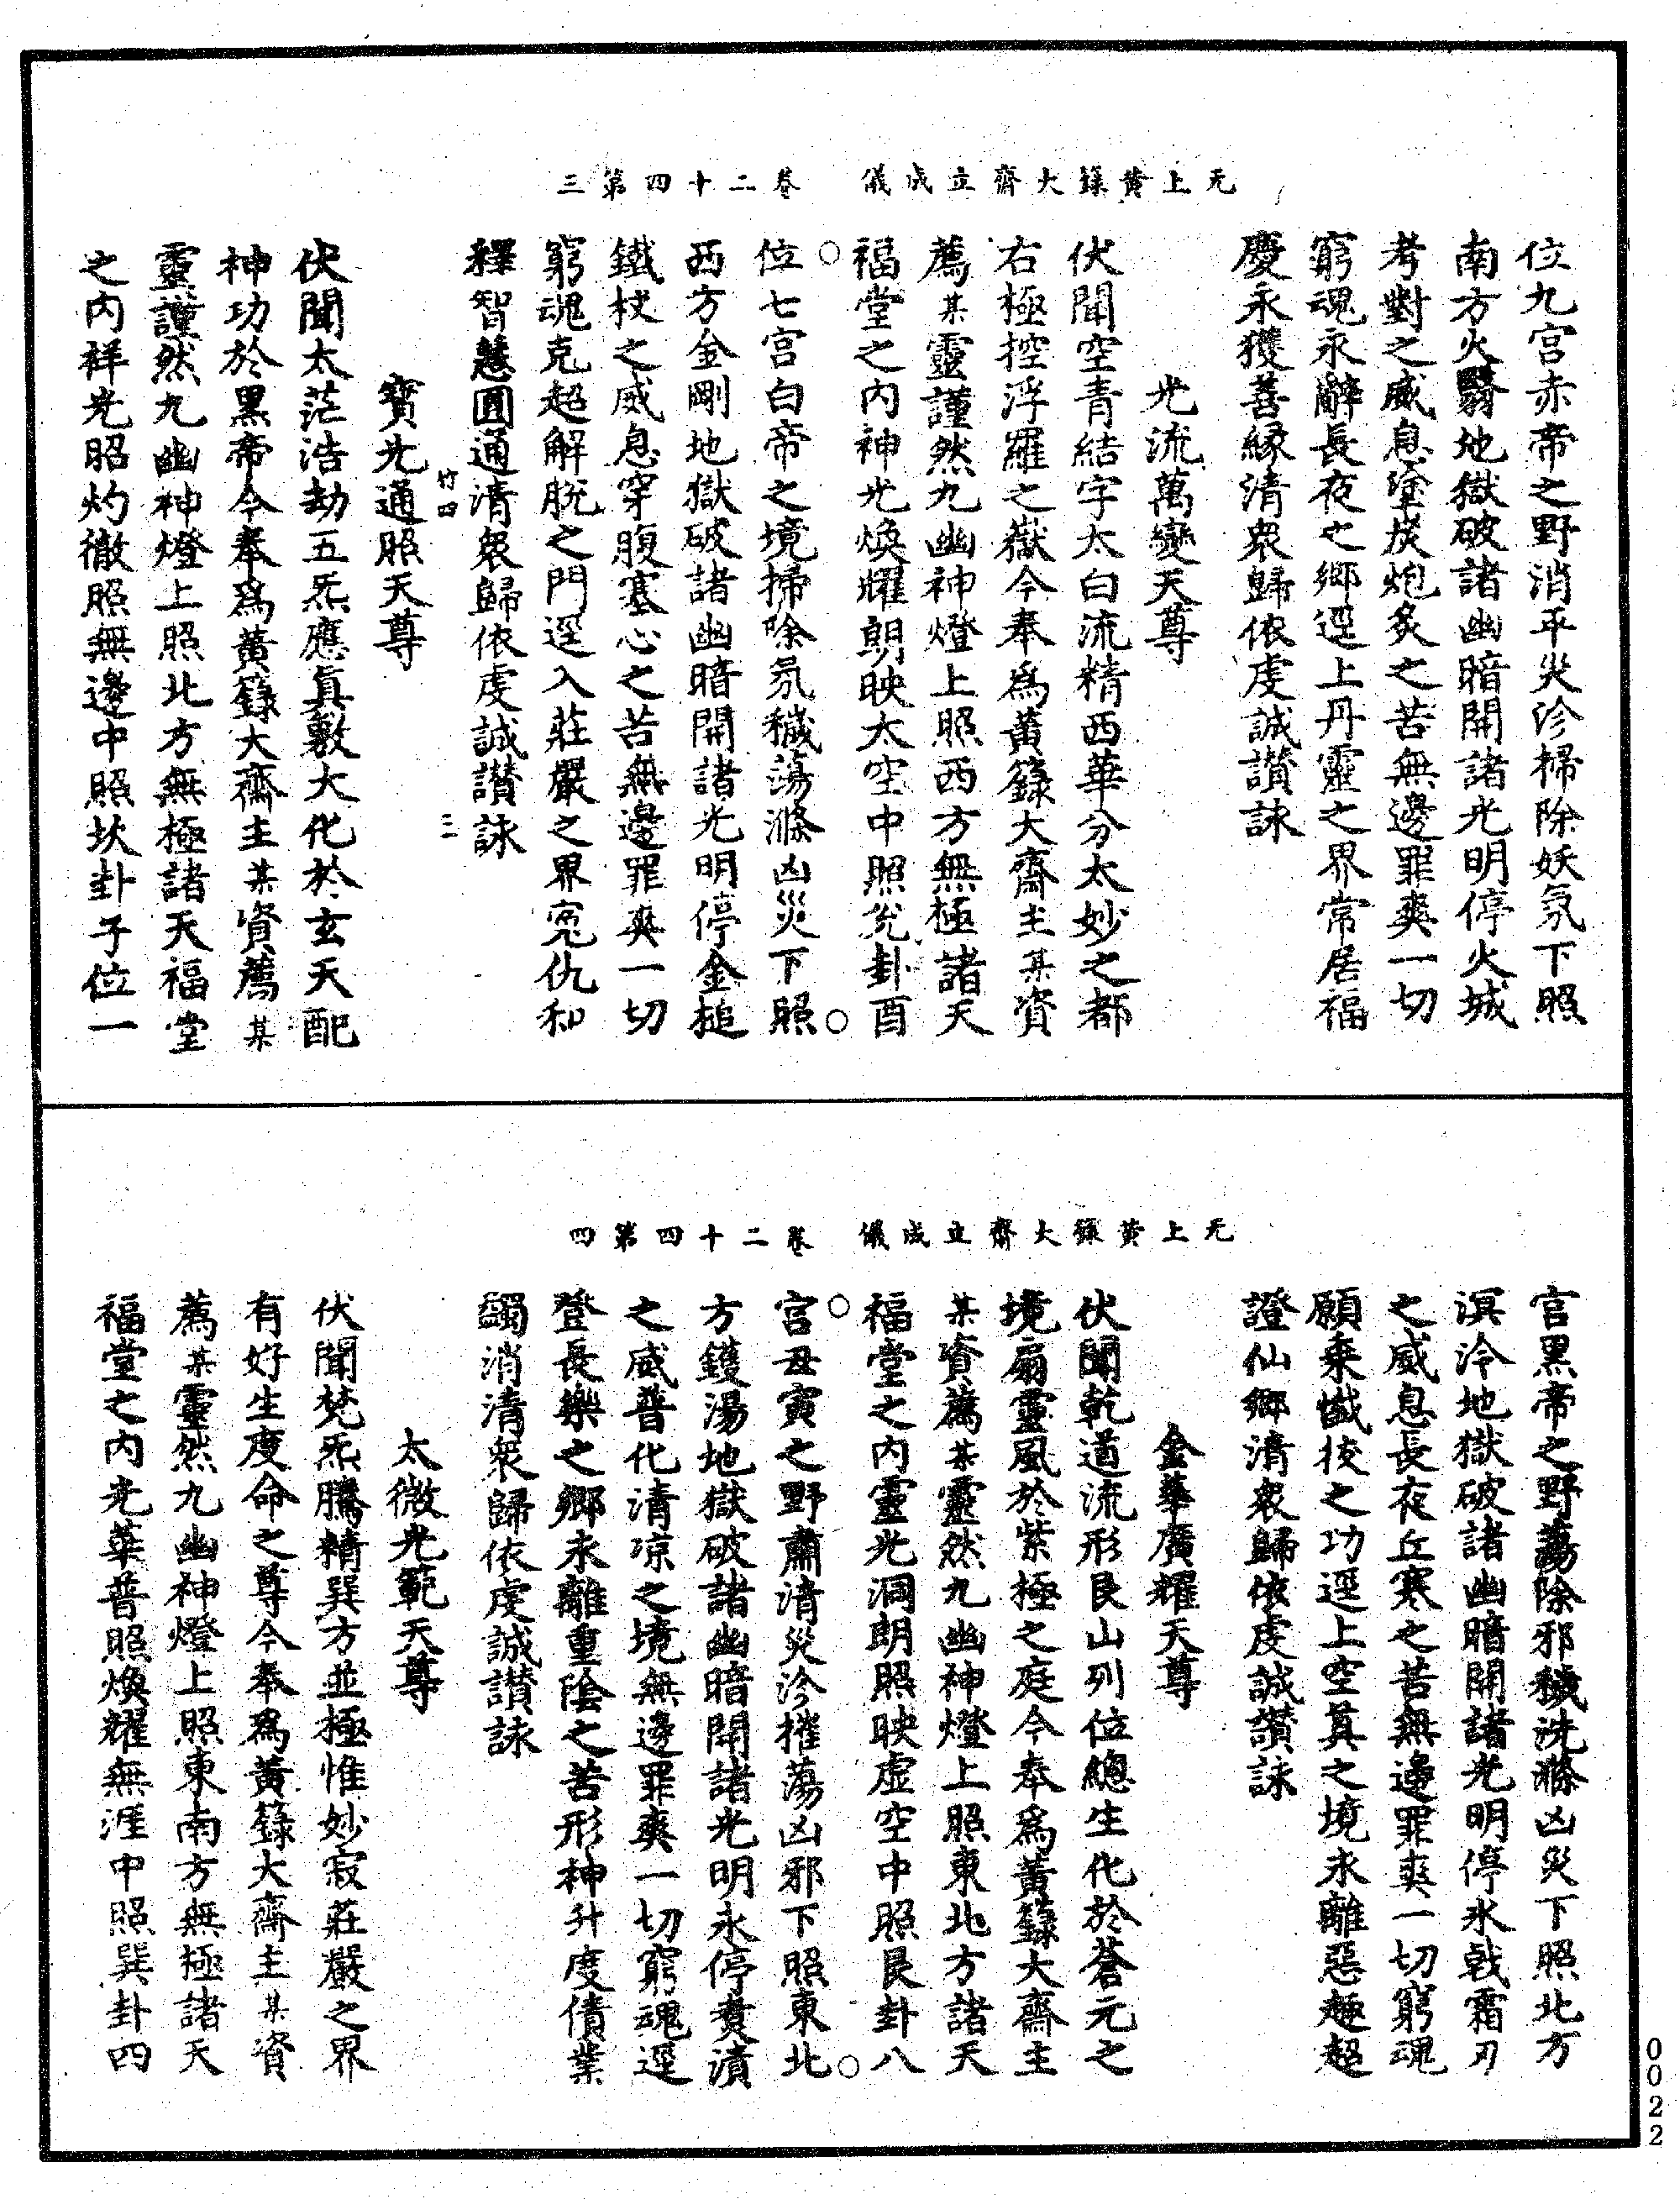 无上黃籙大齋立成儀　卷二十四第三
位九宮赤帝之野消平災沴掃除妖氛下照
南方火翳地獄破諸幽暗開諸光明停火城
考對之威息塗炭炮炙之苦無邊罪爽一切
窮魂永辭長夜之鄉逕上丹靈之界常居福
慶永獲善緣清衆歸依虔誠讃詠
光流萬變天尊
伏聞空青結字太白流精西華分太妙之都
右極控浮羅之嶽今奉爲黃籙大齋主某資
薦某靈謹然九幽神燈上照西方無極諸天
福堂之内神光煥耀朗映太空中照兌卦酉
位七宮白帝之境掃除氛穢蕩滌凶災下照
西方金剛地獄破諸幽暗開諸光明停金槌
鐵杖之威息穿腹塞心之苦無邊罪爽一切
窮魂克超解脫之門逕入莊嚴之界寃仇和
釋智慧圓通清衆歸依虔誠讃詠
竹四　三
寶光通照天尊
伏聞太茫浩劫五炁應眞敷大化於玄天配
神功於黑帝今奉爲黃籙大齋主某資薦某
靈謹然九幽神燈上照北方無極諸天福堂
之内祥光昭灼徹照無邊中照坎卦子位一
无上黃籙大齋立成儀　卷二十四第四
宮黑帝之野蕩除邪穢洗滌凶災下照北方
溟泠地獄破諸幽暗開諸光明停氷戟霜刃
之威息長夜丘寒之苦無邊罪爽一切窮魂
願乘懺拔之功逕上空眞之境永離惡趣超
證仙鄉清衆歸依虔誠讃詠
金華廣耀天尊
伏聞乾道流形艮山列位總生化於蒼元之
境扇靈風於紫極之庭今奉爲黃籙大齋主
某資薦某靈然九幽神燈上照東北方諸天
福堂之内靈光洞朗照映虛空中照艮卦八
宮丑寅之野肅清災沴摧蕩凶邪下照東北
方鑊湯地獄破諸幽暗開諸光明永停煑漬
之威普化清凉之境無邊罪爽一切窮魂逕
登長樂之鄉永離重陰之苦形神升度債業
蠲消清衆歸依虔誠讃詠
太微光範天尊
伏聞梵炁騰精巽方並極惟妙寂莊嚴之界
有好生度命之尊今奉爲黃籙大齋主某資
薦某靈然九幽神燈上照東南方無極諸天
福堂之内光華普照煥耀無涯中照巽卦四
0022